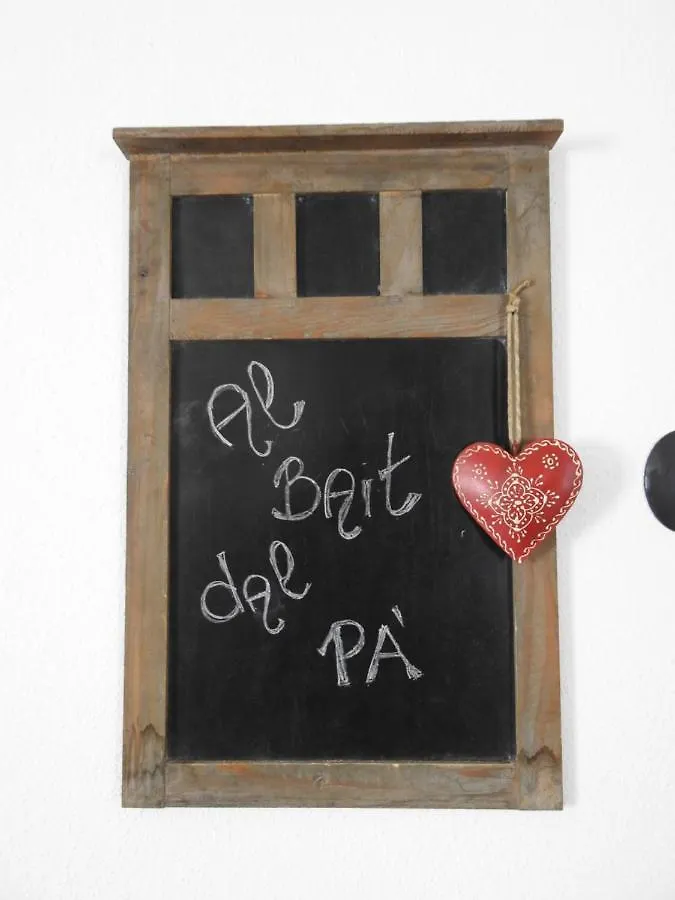 Al
BAit
dal
PÀ